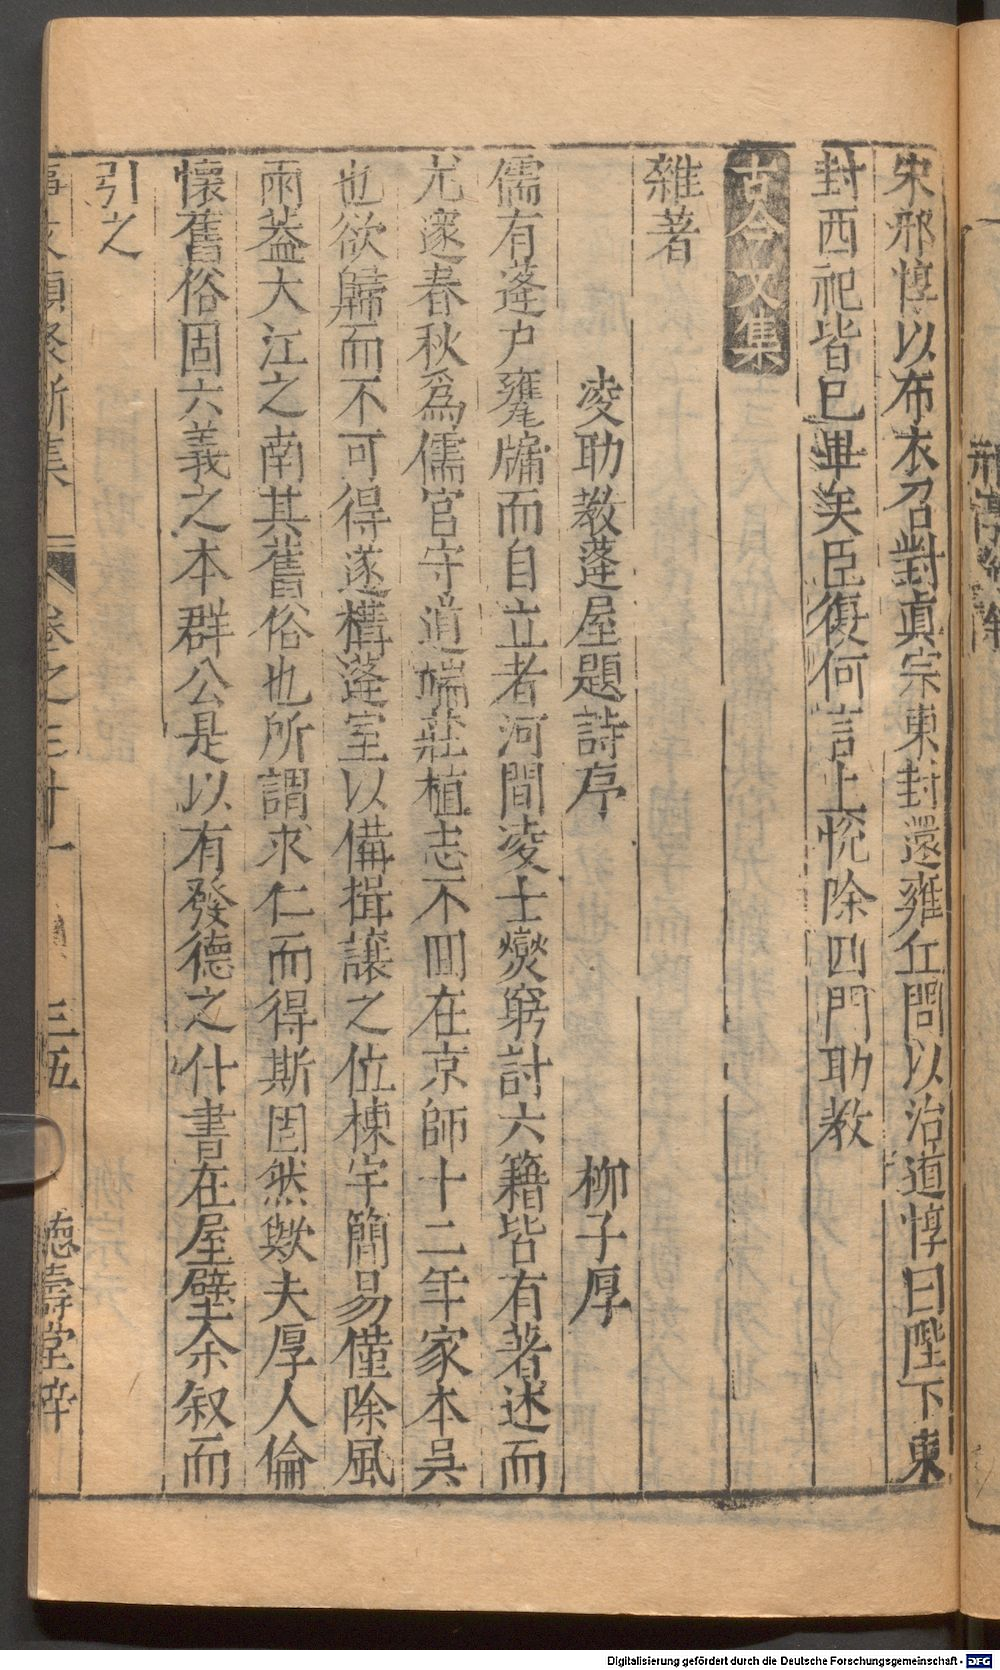 宋邢惇以布衣召對真宗東封還雍丘問以治道惇曰陛下東
封西祀皆已畢矣臣復何言上悅除四門助教
古今文集
雜著
凌助教蓬屋題詩序 柳子厚
儒有蓬户甕牖而自立者河間凌士燮窮討六籍皆有著述而
尤邃春秋爲儒官守道端莊植志不回在京師十二年家本吳
也欲歸而不可得遂構蓬室以備揖讓之位棟宇簡易僅除風
雨蓋大江之南其舊俗也所謂求仁而得斯固然歟夫厚人倫
懷舊俗固六義之本群公是以有發德之什書在屋壁余叙而
引之
事文類聚新集 卷之三十一 三五 德壽堂梓
Digitalisierung gefördert durch die Deutsche Forschungsgemeinschaft - DFG